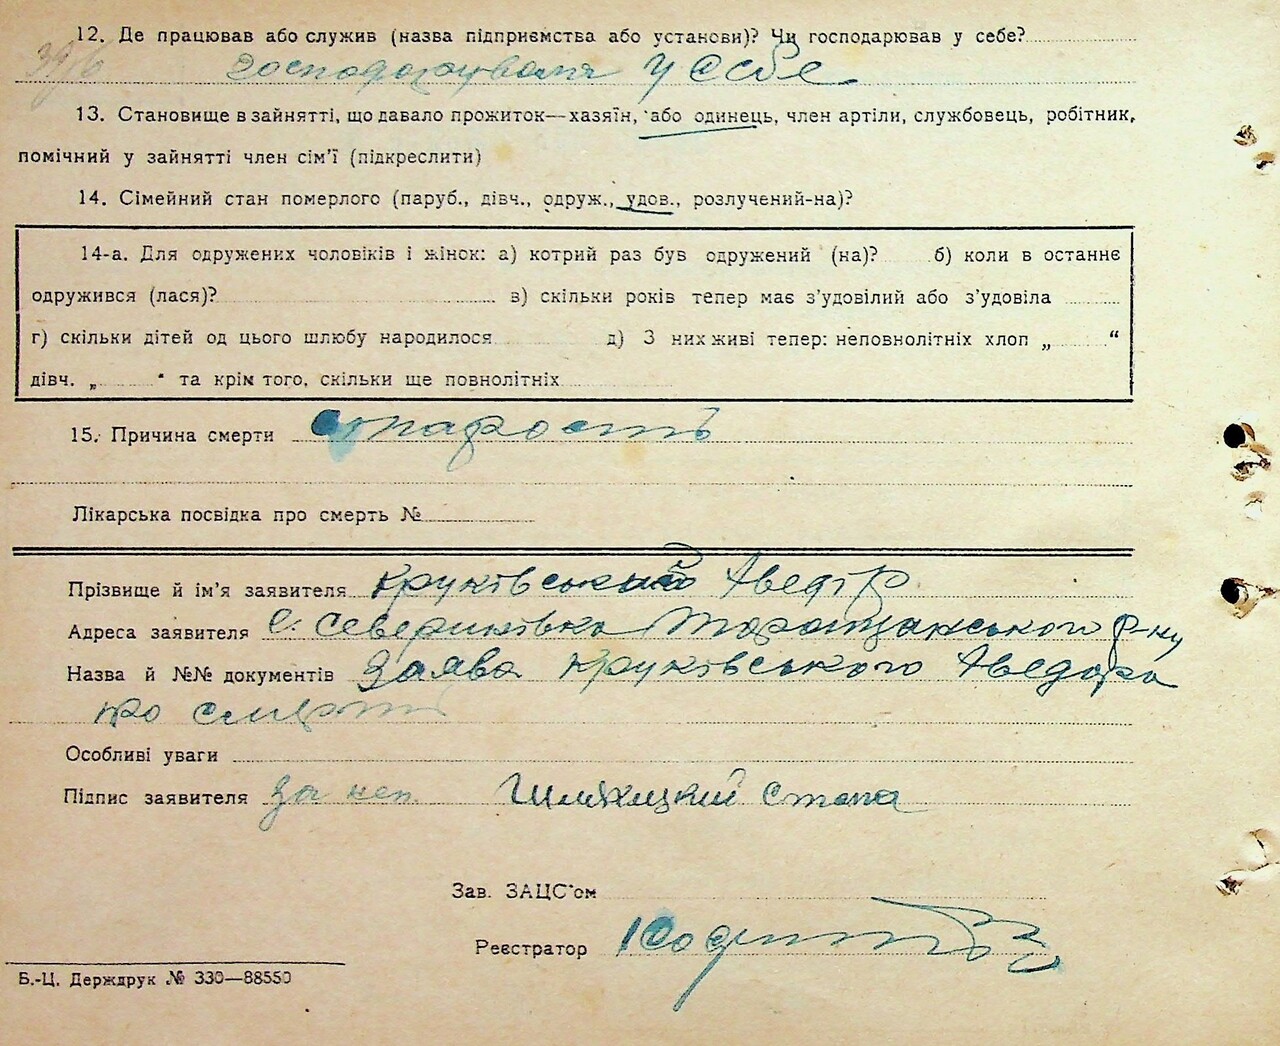 12. Де працював або служив (назва підприємства або установи)? Чи господарював у себе?
у Себе
13. Становище в зайнятті, що давало прожиток—хазяїн, або одинець, член артілі, службовець, робітник,
помічний у зайнятті член сім'ї (підкреслити)
14. Сімейний стан померлого (паруб., дівч., одруж., удов., розлучений-на)?
14-а. Для одружених чоловіків і жінок: а) котрий раз був одружений (на)? б) коли в останнє
одружився (лася)? в) скільки років тепер має з'удовілий або з'удовіла
г) скільки дітей од цього шлюбу народилося д) З них живі тепер: неповнолітніх хлоп „ “
дівч. „ “ та крім того, скільки ще повнолітніх
15. Причина смерти старость
Лікарська посвідка про смерть №
Прізвище й ім'я заявителя Круківський Аведір
Адреса заявителя с. Северинівка Таращанського р-ну
Назва й №№ документів Заява Круківського Аведора
про смерть
Особливі уваги
Підпис заявителя за неп.
Зав. ЗАЦС'ом
Реєстратор
Б.-Ц. Держдрук № 330—88550